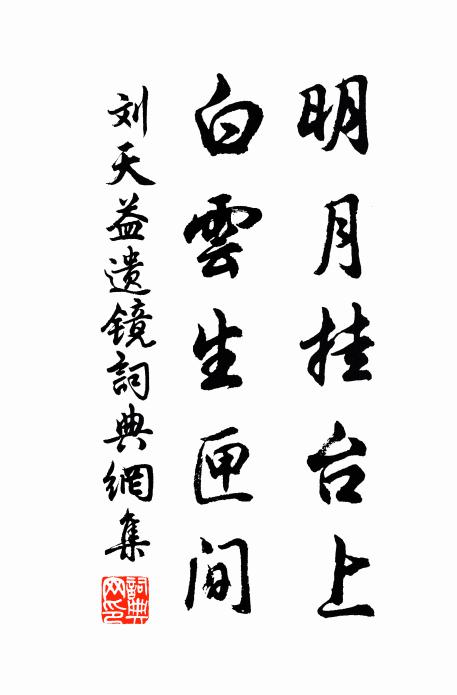 明月挂台上
白雲生匣间
刘天益遗镜詞典網集
詞典網印